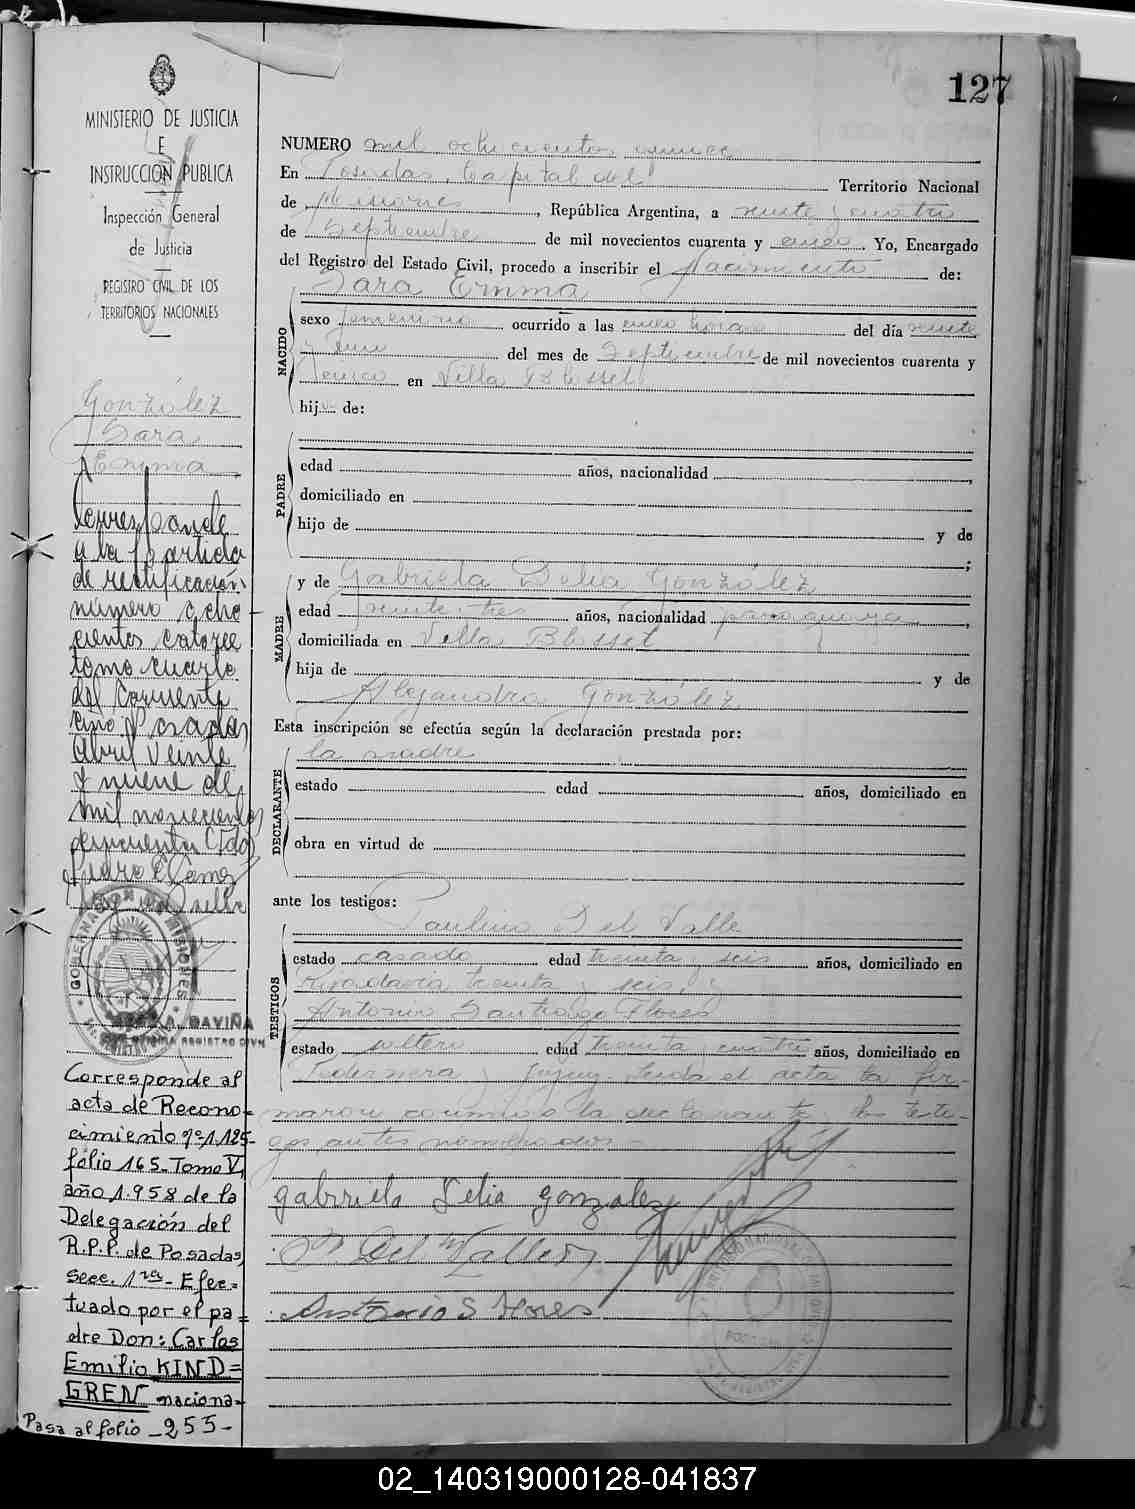 127
MINISTERIO DE JUSTICIA
E
INSTRUCCIÓN PUBLICA
Inspección General
de Justicia
REGISTRO CIVIL DE LOS
TERRITORIOS NACIONALES
González
Sara
Emma
Corresponde
a la partida
de rectificación
número ocho
cientos catorce
tomo cuarto
del corriente
año Posadas
Abril veinte
y nueve de
mil novecientos
cincuenta
GOBERNACION MISIONES
DAVIÑA
REGISTRO CIVIL
Corresponde al
acta de Recono=
cimiento nº 1.125-
folio 165-Tomo V,
año 1.958 de la
Delegación del
R.P.P. de Posadas,
Secc. 1ra- Efec=
tuado por el pa=
dre Don: Carlos
Emilio KIND=
GREN naciona-
Pasa al folio -255-
NUMERO mil ochocientos quince
En Posadas, Capital del Territorio Nacional
de Misiones, República Argentina, a veinte y cuatro
de Septiembre de mil novecientos cuarenta y cinco. Yo, Encargado
del Registro del Estado Civil, procedo a inscribir el Nacimiento de:
Sara Emma
NACIDO
sexo femenino ocurrido a las cinco horas del día veinte
y uno del mes de Septiembre de mil novecientos cuarenta y
cinco en Villa Blosset
hija de:
PADRE
edad años, nacionalidad ,
domiciliado en
hijo de y de
;
MADRE
y de Gabriela Delia González
edad veinte tres años, nacionalidad paraguaya,
domiciliada en Villa Blosset
hija de y de
Alejandra González
Esta inscripción se efectúa según la declaración prestada por:
la madre
DECLARANTE
estado edad años, domiciliado en
obra en virtud de
ante los testigos:
Paulino Del Valle
TESTIGOS
estado casado edad treinta y seis años, domiciliado en
Rivadavia treinta y seis, y
Antonio Santiago Flores
estado soltero edad treinta y cuatro años, domiciliado en
Pedernera y Jujuy. Leida el acta la fir-
maron conmigo la declarante los testi-
gos antes nombrados.-
gabriela Delia gonzalez
P. Del Valle
Antonio S Flores
02_140319000128-041837